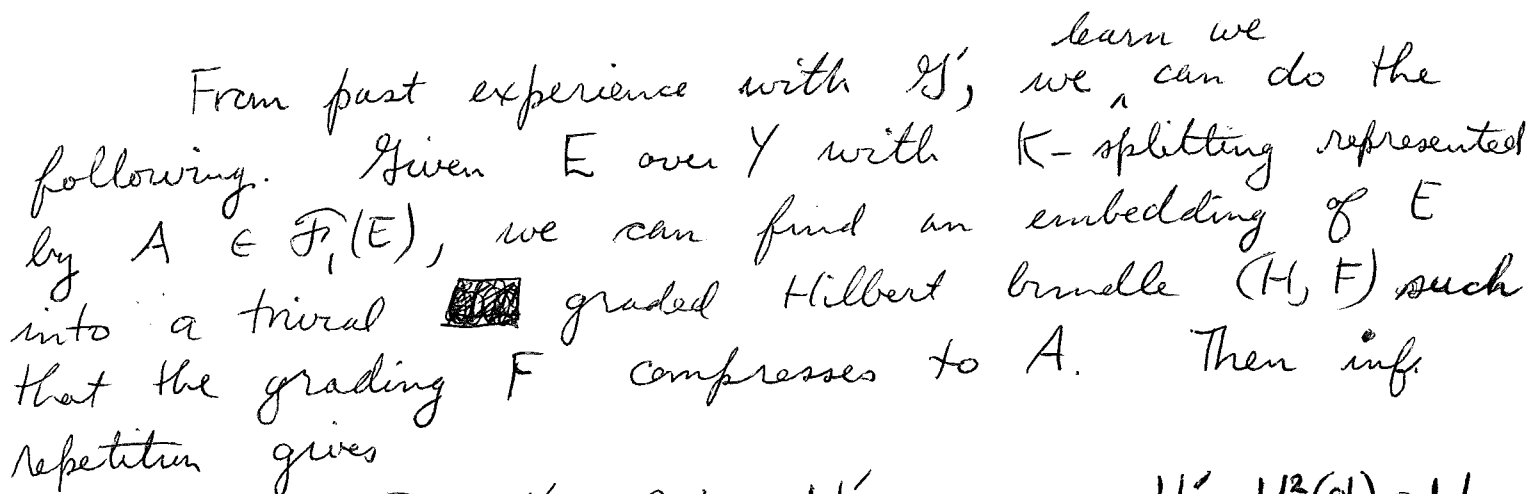 learn we
From past experience with 𝒢', we ‸ can do the
following. Given E over Y with K-splitting represented
by A ∈ ℱ₁(E), we can find an embedding of E
into a trivial graded Hilbert bundle (H, F) such
that the grading F compresses to A. Then inf.
repetition gives